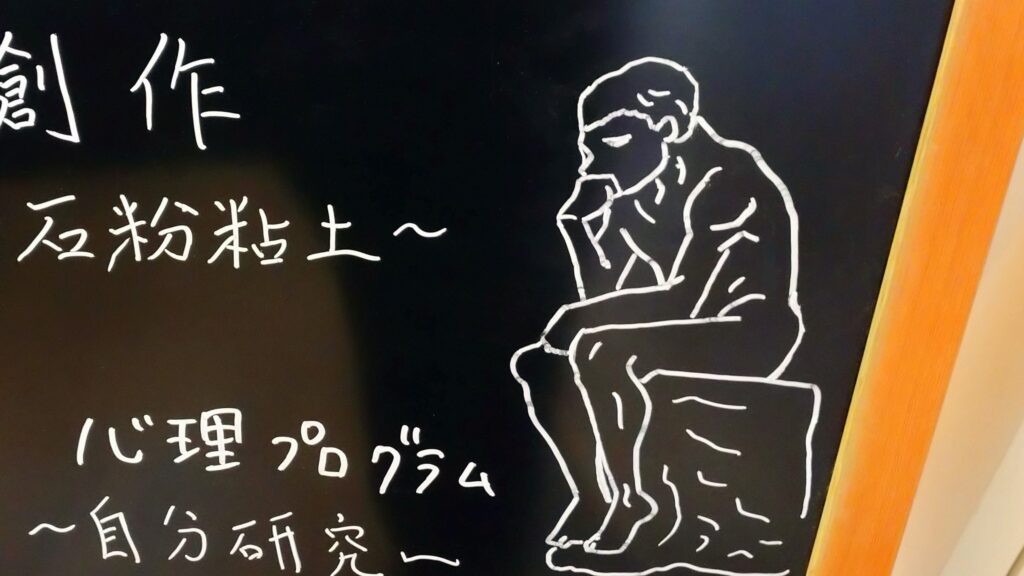 創作
石粉粘土～
心理プログラム
～自分研究～